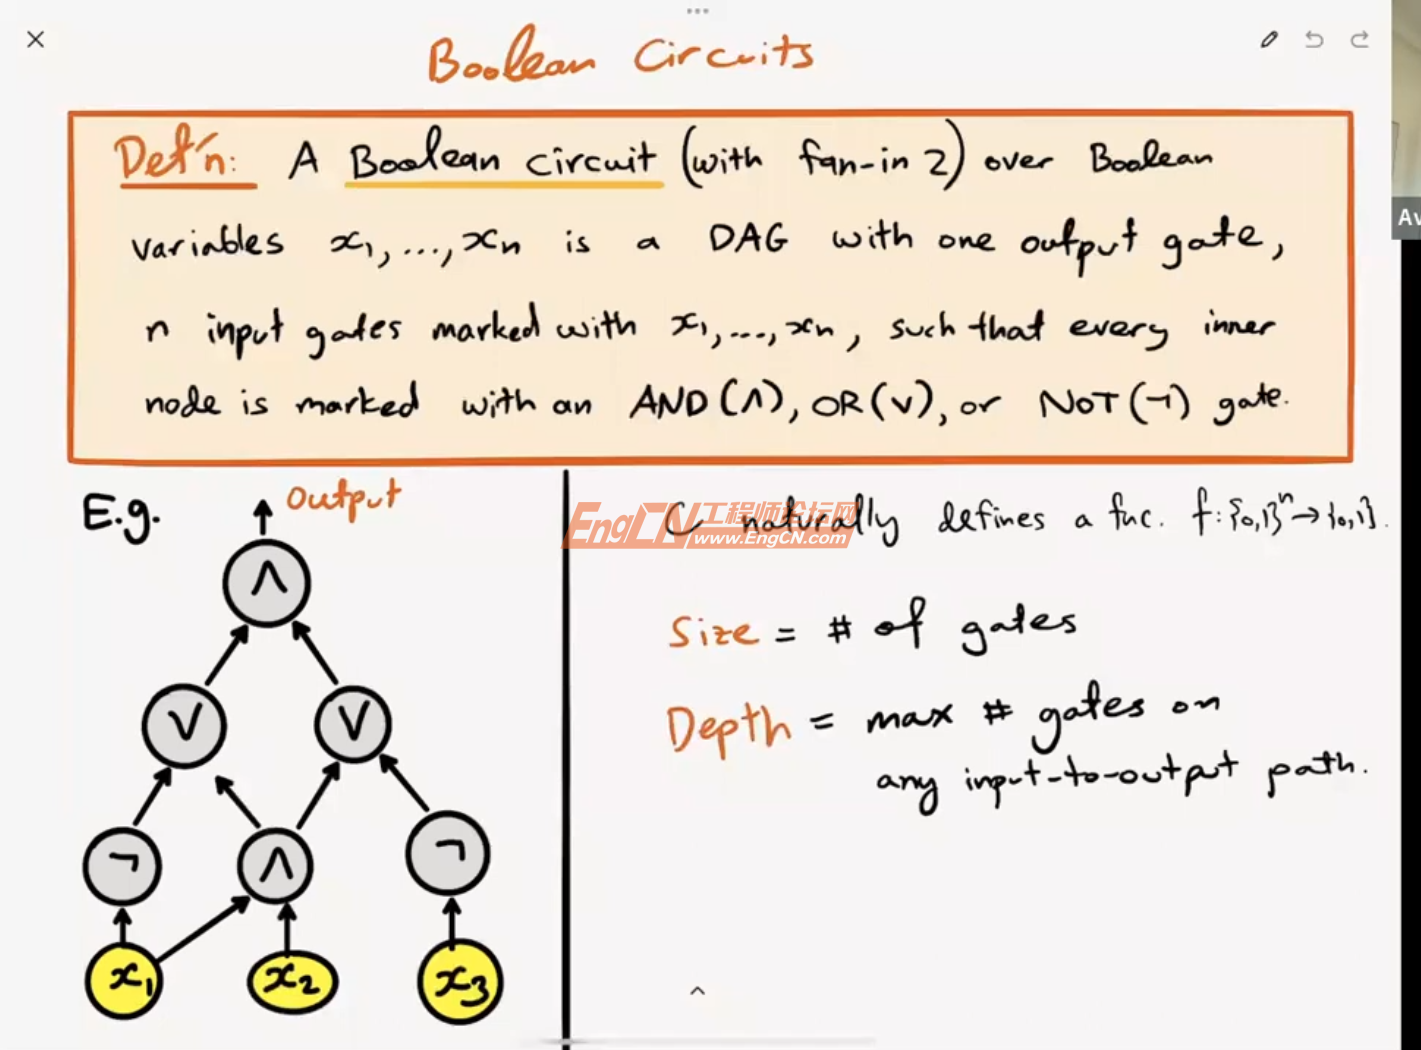 Boolean Circuits
Def'n: A Boolean circuit (with fan-in 2) over Boolean
variables x₁,...,xₙ is a DAG with one output gate,
n input gates marked with x₁,...,xₙ, such that every inner
node is marked with an AND(∧), OR(∨), or NOT(¬) gate.
Av
E.g.
output
∧
∨ ∨
¬ ∧ ¬
x₁ x₂ x₃
C naturally defines a func. f:{0,1}ⁿ→{0,1}.
EngCN工程师论坛网
www.EngCN.com
Size = # of gates
Depth = max # gates on
any input-to-output path.